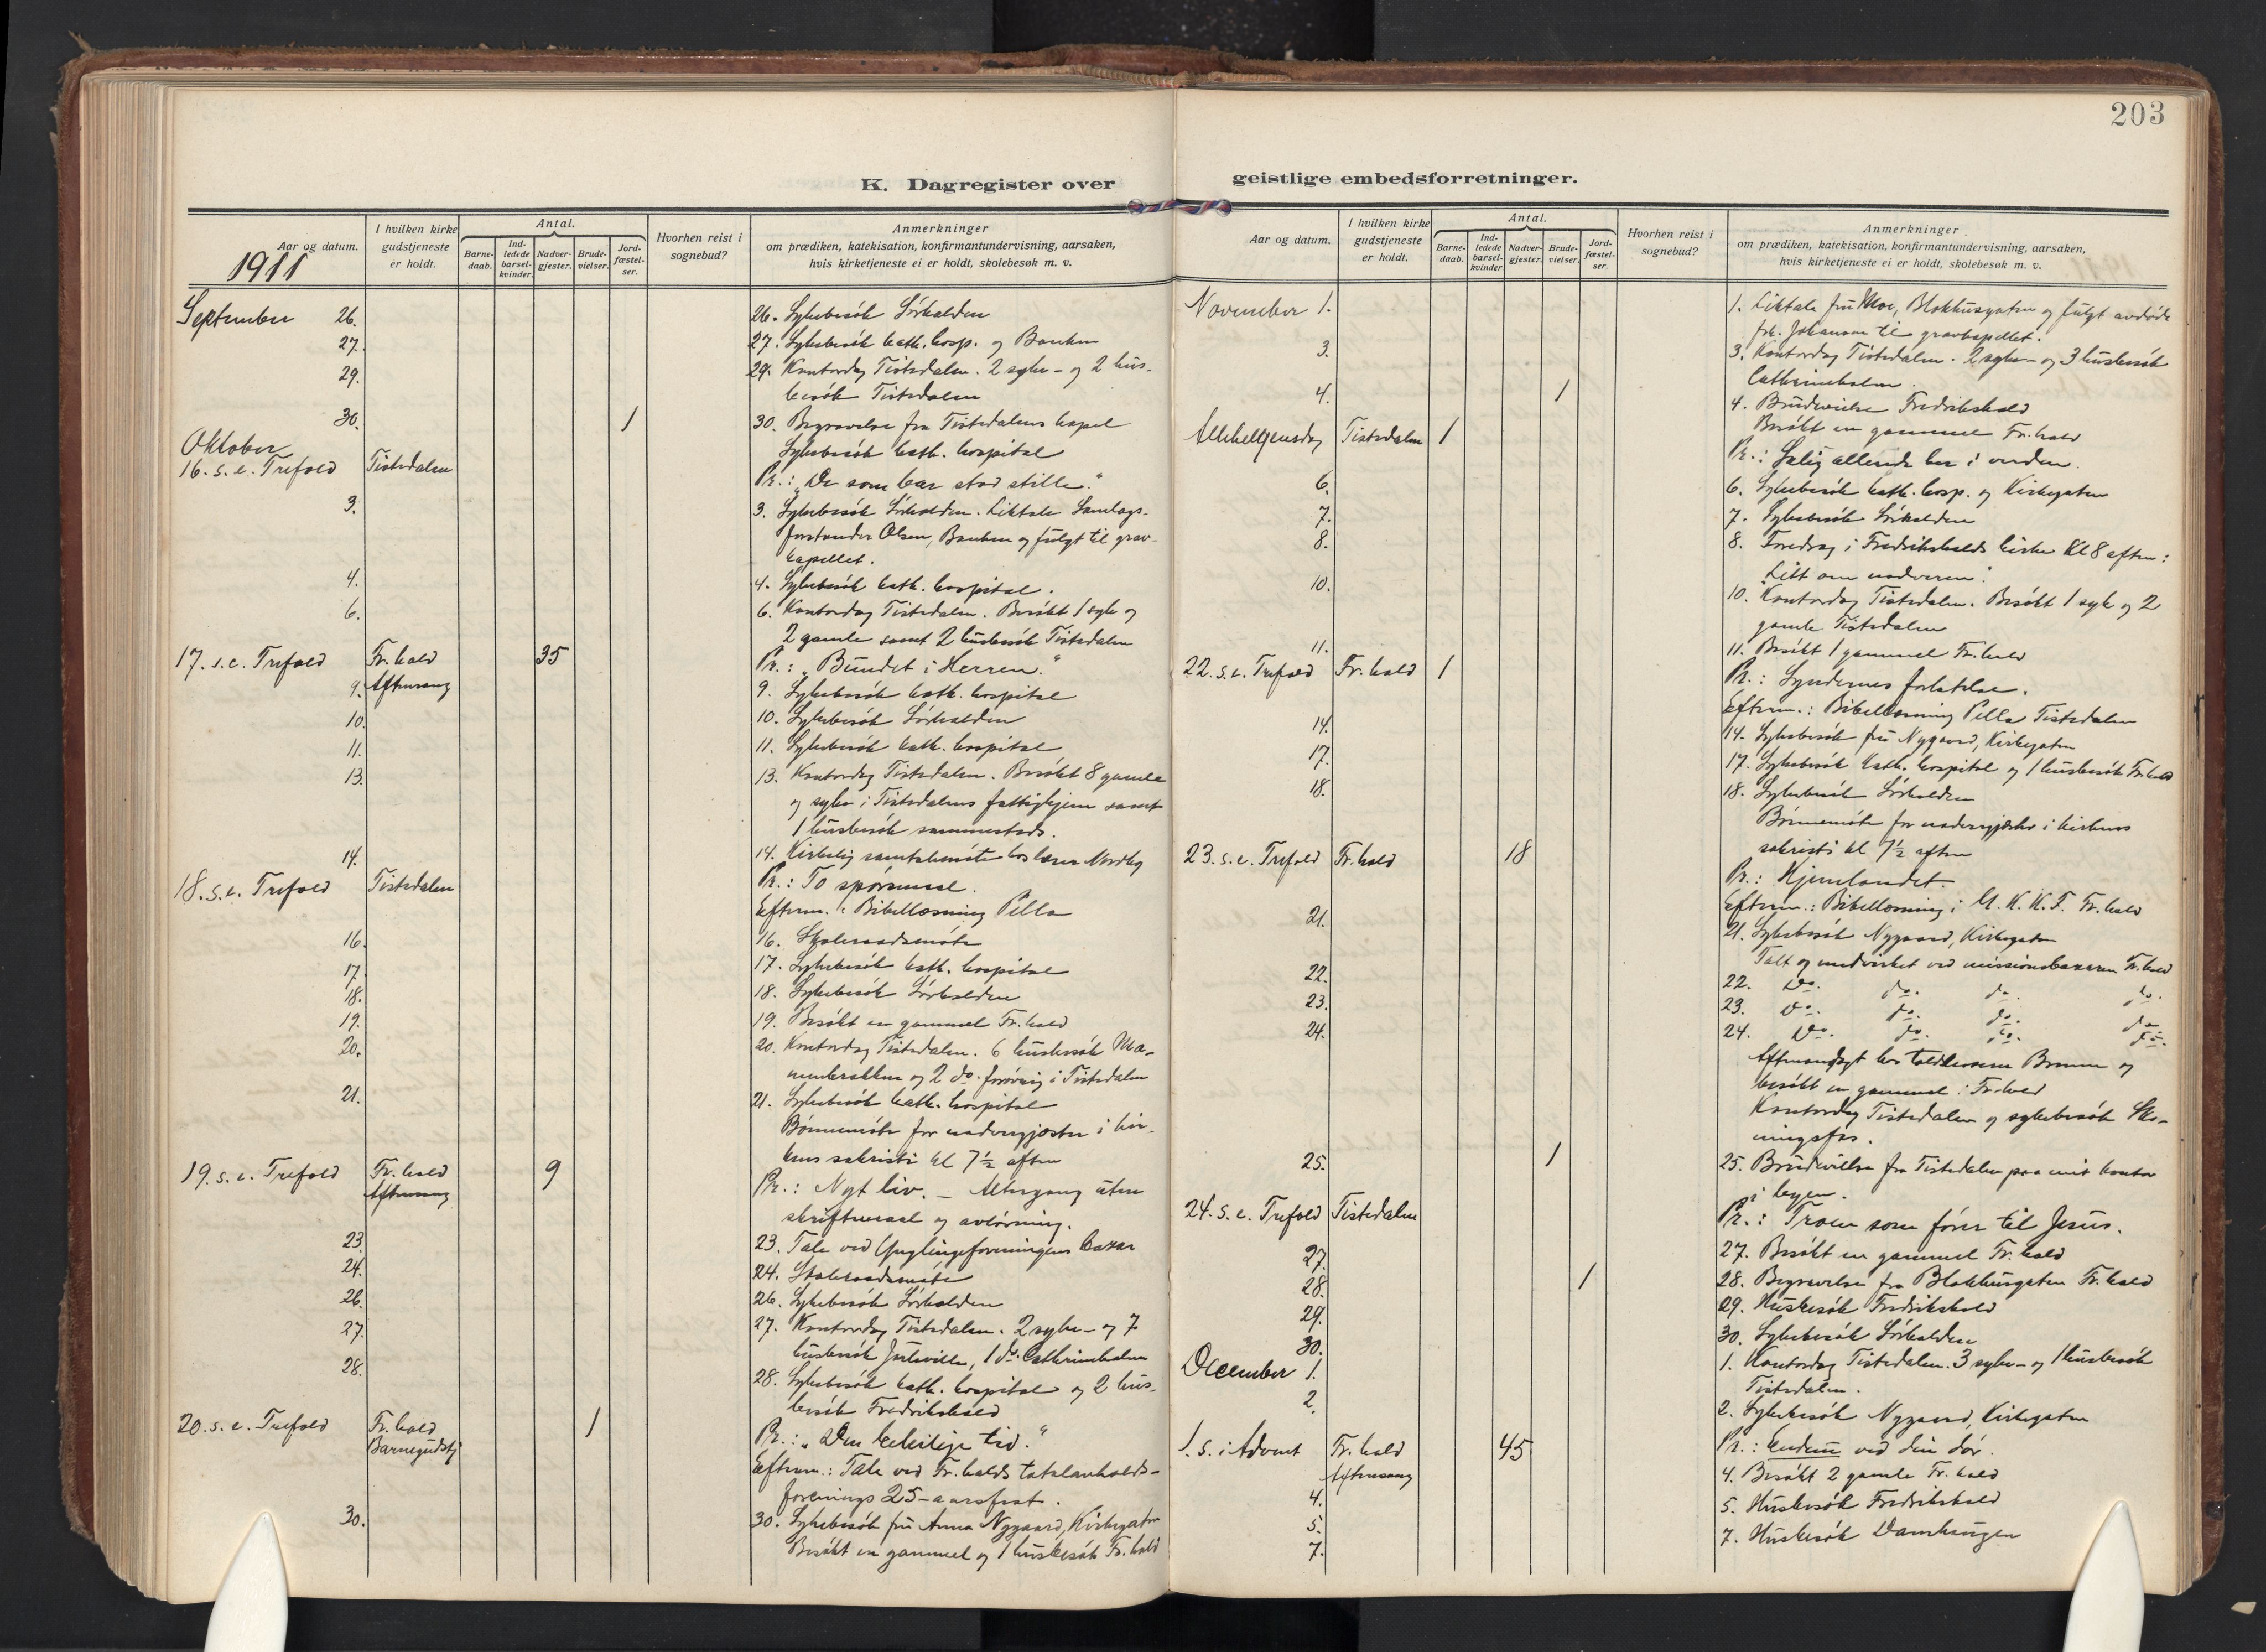 203
K. Dagregister over geistlige embedsforretninger.
Aar og datum.
1911
I hvilken kirke gudstjeneste er holdt.
Antal.
Barnedaab.
Indledede barselkvinder.
Nadvergjester.
Brudevielser.
Jordfæstelser.
Hvorhen reist i sognebud?
Anmerkninger
om prædiken, katekisation, konfirmantundervisning, aarsaken,
hvis kirketjeneste ei er holdt, skolebesøk m. v.
September 26. 26. Sykebesök Sörhalden
27. 27. Sykebesök kath. hosp. og Banken
29. 29. Kontordag Tistedalen. 2 syke- og 2 hus-
besök Tistedalen
30. 1 30. Begravelse fra Tistedalens kapel
Oktober Sykebesök kath. hospital
16. s. e. Trefold Tistedalen Pr.: „De som bar stod stille."
3. 3. Sykebesök Sörhalden. Liktale Samlags-
forstander Olsen, Banken og fulgt til grav-
kapellet.
4. 4. Sykebesök kath. hospital.
6. 6. Kontordag Tistedalen. Besökt 1 syk og
2 gamle samt 2 husbesök Tistedalen
17. s. e. Trefold Fr.hald 35 Pr.: „Bundet i Herren."
9. Aftensang 9. Sykebesök kath. hospital
10. 10. Sykebesök Sörhalden
11. 11. Sykebesök kath. hospital
13. 13. Kontordag Tistedalen. Besökt 8 gamle
og syke i Tistedalens fattighjem samt
1 husbesök sammesteds.
14. 14. Kirkelig samtalemöte hos lærer Nordby
18. s. e. Trefold Tistedalen Pr.: To spörsmaal.
Efterm.: Bibellæsning Pella
16. 16. Skoleraadsmöte
17. 17. Sykebesök kath. hospital
18. 18. Sykebesök Sörhalden
19. 19. Besökt en gammel Fr.hald
20. 20. Kontordag Tistedalen. 6 husbesök
og 2 do. forövrig i Tistedalen
21. 21. Sykebesök kath. hospital
Bönnemöte for nadvergjester i kir-
kens sakristi kl 7½ aften
19. s. e. Trefold Fr.hald 9 Pr.: Nyt liv. – Altergang uten
Aftensang skriftemaal og avlösning.
23. 23. Tale ved Ynglingeforeningens bazar
24. 24. Skoleraadsmöte
26. 26. Sykebesök Sörhalden
27. 27. Kontordag Tistedalen. 2 syke- og 7
husbesök 1 do. Cathrineholm
28. 28. Sykebesök kath. hospital og 2 hus-
besök Fredrikshald
20. s. e. Trefold Fr.hald 1 Pr.: „Den beleilige tid."
Barnegudstj. Efterm.: Tale ved Fr.halds totalavholds-
forenings 25-aarsfest.
30. 30. Sykebesök fru Anna Nygaard, Kirkegaten
Besökt en gammel og 1 husbesök Fr.hald
Aar og datum.
I hvilken kirke gudstjeneste er holdt.
Antal.
Barnedaab.
Indledede barselkvinder
Nadvergjester.
Brudevielser.
Jordfæstelser.
Hvorhen reist i sognebud?
Anmerkninger.
om prædiken, katekisation, konfirmantundervisning, aarsaken,
hvis kirketjeneste ei er holdt, skolebesøk m. v.
November 1. 1. Liktale fru Moe, Blokhusgaten og fulgt avdöde
frk. Johansen til gravkapellet.
3. 3. Kontordag Tistedalen. 2 syke- og 3 husbesök
Cathrineholm.
4. 1 4. Brudevielse Fredrikshald
Besökt en gammel Fr.hald
Allehelgensdag Tistedalen 1 Pr.: Salig allerede her i verden.
6. 6. Sykebesök kath. hosp. og Kirkegaten
7. 7. Sykebesök Sörhalden
8. 8. Foredrag i Fredrikshalds kirke kl 8 aften:
„Litt om nadveren".
10. 10. Kontordag Tistedalen. Besökt 1 syk og 2
gamle Tistedalen
11. 11. Besökt 1 gammel Fr.hald
22. s. e. Trefold Fr.hald 1 Pr.: Syndernes forlatelse.
Efterm.: Bibellæsning Pella Tistedalen
14. 14. Sykebesök fru Nygaard, Kirkegaten
17. 17. Sykebesök kath. hospital og 1 husbesök Fr.hald
18. 18. Sykebesök Sörhalden
Bönnemöte for nadvergjester i kirkens
sakristi kl 7½ aften
23. s. e. Trefold Fr.hald 18 Pr.: Hjemlandet.
Efterm.: Bibellæsning i U. K. K. F. Fr.hald
21. 21. Sykebesök Nygaard, Kirkegaten
Talt og medvirket ved missionsbazaren Fr.hald
22. 22. Do. do. do. do.
23. 23. Do. do. do. do.
24. 24. Do. do. do. do.
hos og
besökt en gammel i Fr.hald
Kontordag Tistedalen og sykebesök
25. 1 25. Brudevielse fra Tistedalen paa mit kontor
i byen.
24. s. e. Trefold Tistedalen Pr.: Troen som förer til Jesus.
27. 27. Besökt en gammel Fr.hald
28. 1 28. Begravelse fra Blokhusgaten Fr.hald
29. 29. Husbesök Fredrikshald
30. 30. Sykebesök Sörhalden
December 1. 1. Kontordag Tistedalen. 3 syke- og 1 husbesök
Tistedalen.
2. 2. Sykebesök Nygaard, Kirkegaten
1. s. i Advent Fr.hald 45 Pr.: Endnu ved din dör.
Aftensang
4. 4. Besökt 2 gamle Fr.hald
5. 5. Husbesök Fredrikshald
7. 7. Husbesök Damhaugen